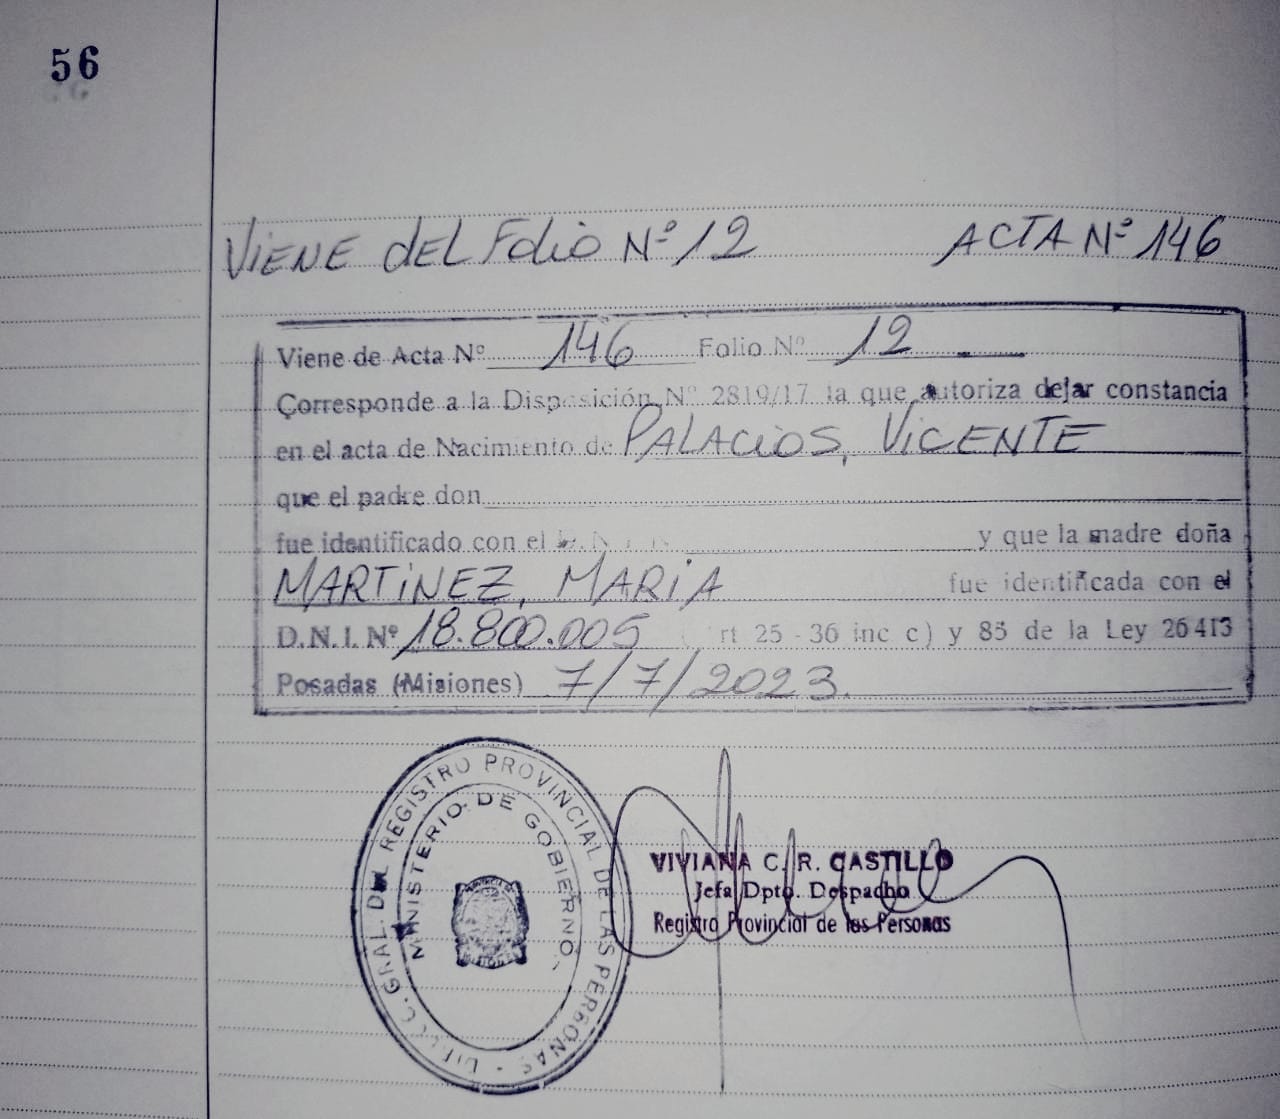 56
VIENE DEL Folio Nº 12 ACTA Nº 146
Viene de Acta Nº 146 Folio Nº 12
Corresponde a la Disposición Nº 2819/17 la que autoriza dejar constancia
en el acta de Nacimiento de PALACIOS, VICENTE
que el padre don
fue identificado con el D.N.I. Nº y que la madre doña
MARTINEZ, MARIA fue identificada con el
D.N.I. Nº 18.800.005 (rt 25 - 36 inc c) y 85 de la Ley 26413
Posadas (Misiones) 7/7/2023.
GRAL. DEL REGISTRO PROVINCIAL DE LAS PERSONAS
MINISTERIO DE GOBIERNO
VIVIANA C. R. CASTILLO
Jefa Dpto. Despacho
Registro Provincial de las Personas